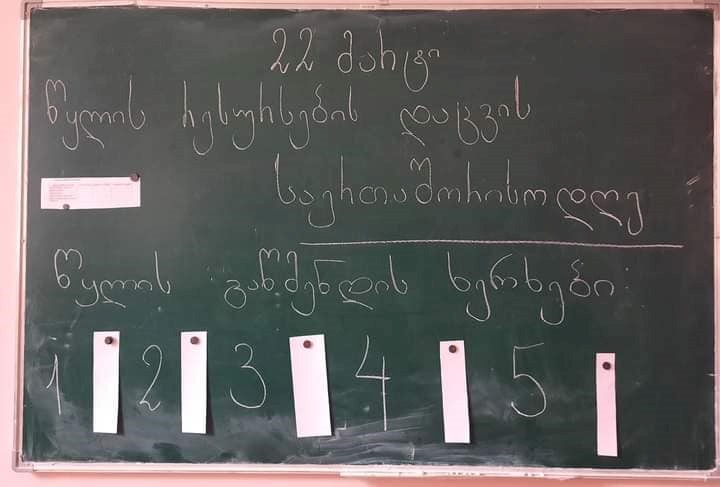 22 მარტი
წყლის რესურსების დაცვის
საერთაშორისო დღე
წყლის გაწმენდის ხერხები:
1 2 3 4 5